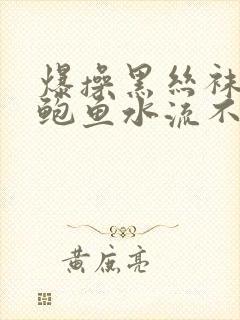 爆操黑丝袜
鲍鱼水流不
黄庶亮